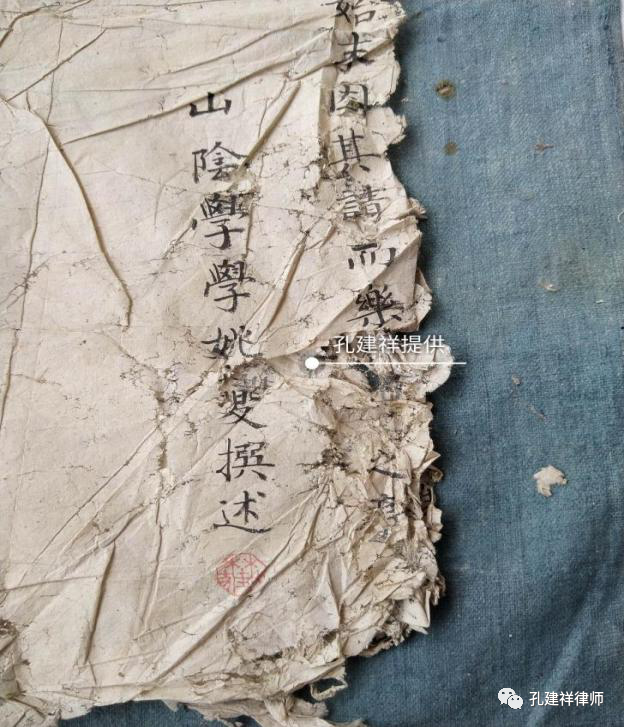 始末因其請而樂之
山陰學學姚燮撰述
孔建祥提供
孔建祥律师